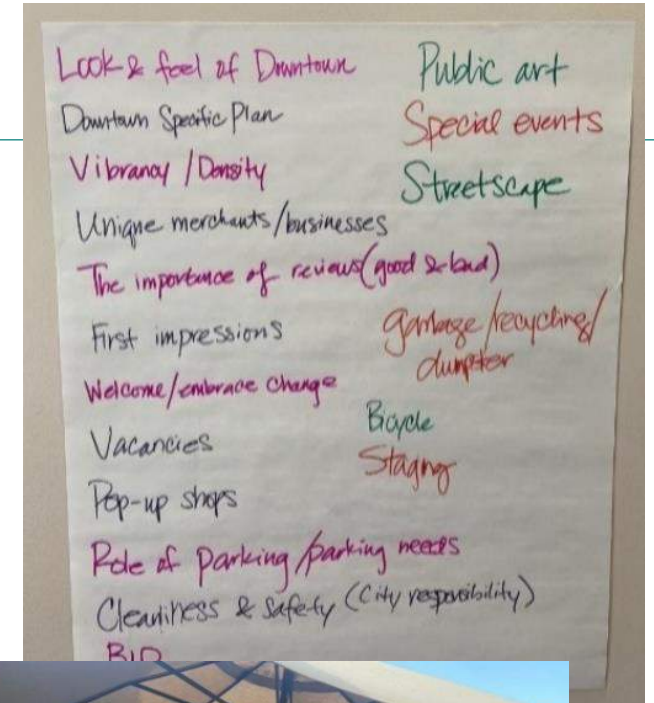 Look & feel of Downtown
Downtown Specific Plan
Vibrancy / Density
Unique merchants/businesses
The importance of reviews (good & bad)
First impressions
Welcome/embrace change
Vacancies
Pop-up shops
Role of parking/parking needs
Cleanliness & safety (City responsibility)
BID
Public art
Special events
Streetscape
garbage/recycling/
dumpster
Bicycle
Staging